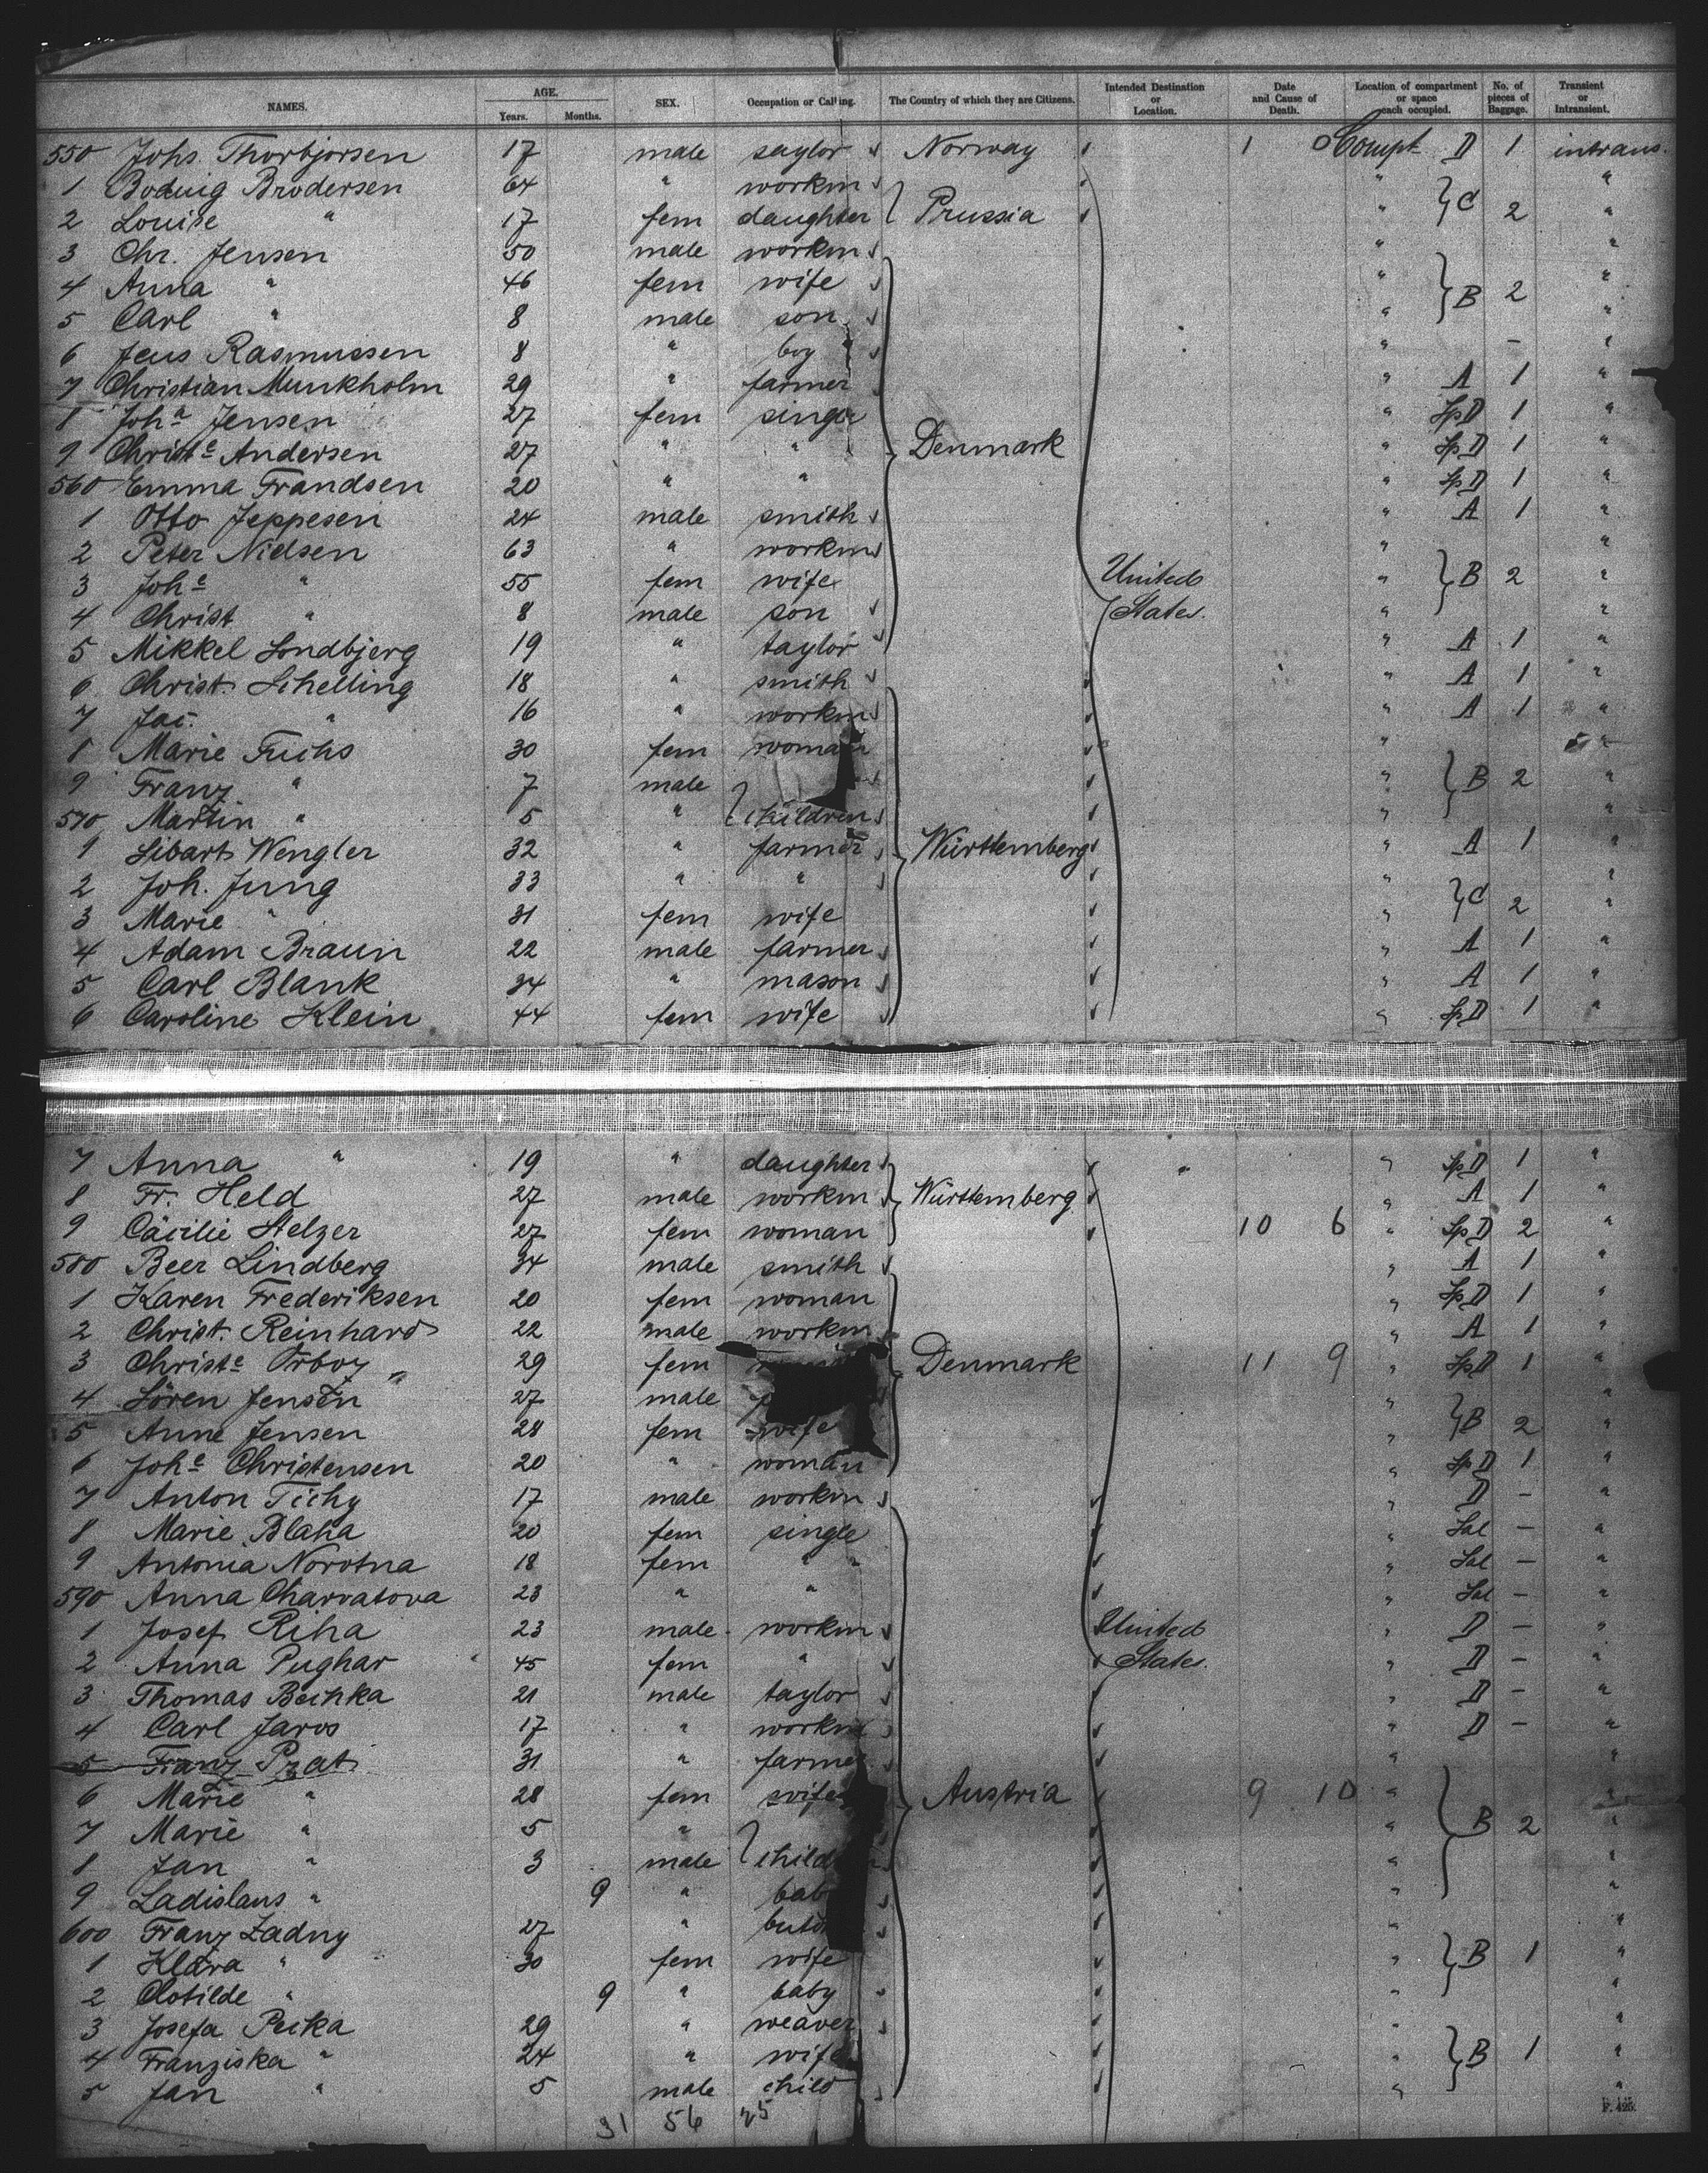 NAMES. AGE. Years. Months. SEX. Occupation or Calling. The Country of which they are Citizens. Intended Destination or Location. Date and Cause of Death. Location of compartment or space each occupied. No. of pieces of Baggage. Transient or Intransient.
550 Johs. Thorbjorsen 17 male saylor Norway 1 0 Compt D 1 intrans.
1 Bodwig Brodersen 64 " workm " "
2 Louise " 17 fem daughter Prussia " C 2 "
3 Chr. Jensen 50 male workm " "
4 Anna " 46 fem wife " B 2 "
5 Carl " 8 male son " "
6 Jens Rasmussen 8 " boy " – "
7 Christian Munkholm 29 " farmer " A 1 "
8 Joh.a Jensen 27 fem single " Sp D 1 "
9 Christ.e Andersen 27 " " Denmark " Sp D 1 "
560 Emma Frandsen 20 " " " Sp D 1 "
1 Otto Jeppesen 24 male smith " A 1 "
2 Peter Nielsen 63 " workm " "
3 Joh.e " 55 fem wife United " B 2 "
4 Christ " 8 male son States. " "
5 Mikkel Londbjerg 19 " taylor " A 1 "
6 Christ. Schelling 18 " smith " A 1 "
7 Jac. " 16 " workm " A 1 "
8 Marie Fuchs 30 fem woman " "
9 Franz " 7 male " B 2 "
570 Martin " 5 " children " "
1 Libart Wengler 32 " farmer Württemberg " A 1 "
2 Joh. Jung 33 " " " "
3 Marie " 31 fem wife " C 2 "
4 Adam Braun 22 male farmer " A 1 "
5 Carl Blank 34 " mason " A 1 "
6 Caroline Klein 44 fem wife " Sp D 1 "
7 Anna " 19 " daughter " " Sp D 1 "
8 Fr. Held 27 male workm Württemberg " A 1 "
9 Cäcilie Stelzer 27 fem woman 10 6 " Sp D 2 "
580 Beer Lindberg 34 male smith " A 1 "
1 Karen Frederiksen 20 fem woman " Sp D 1 "
2 Christ. Reinhard 22 male workm " A 1 "
3 Christ.e 29 fem Denmark 11 9 " Sp D 1 "
4 Sören Jensen 27 male " "
5 Anne Jensen 28 fem wife " B 2 "
6 Joh.e Christensen 20 " woman " Sp D 1 "
7 Anton Tichy 17 male workm " D – "
8 Marie Blaha 20 fem single " Sal – "
9 Antonia Norotna 18 fem " " Sal – "
590 Anna Charvatova 23 " " " Sal – "
1 Josef Riha 23 male workm United " D – "
2 Anna Pughar 45 fem " States. " D – "
3 Thomas Bechka 21 male taylor " D – "
4 Carl Jaros 17 " workm " D – "
5 Franz Prat 31 " farmer " "
6 Marie " 28 fem wife Austria 9 10 " "
7 Marie " 5 " " B 2 "
8 Jan " 3 male child " "
9 Ladislaus " 9 " baby " "
600 Franz Zadny 27 " " "
1 Klara " 30 fem wife " B 1 "
2 Clotilde " 9 " baby " "
3 Josefa Pecka 29 " weaver " "
4 Franziska " 24 " wife " B 1 "
5 Jan " 5 male child " "
31 56 25